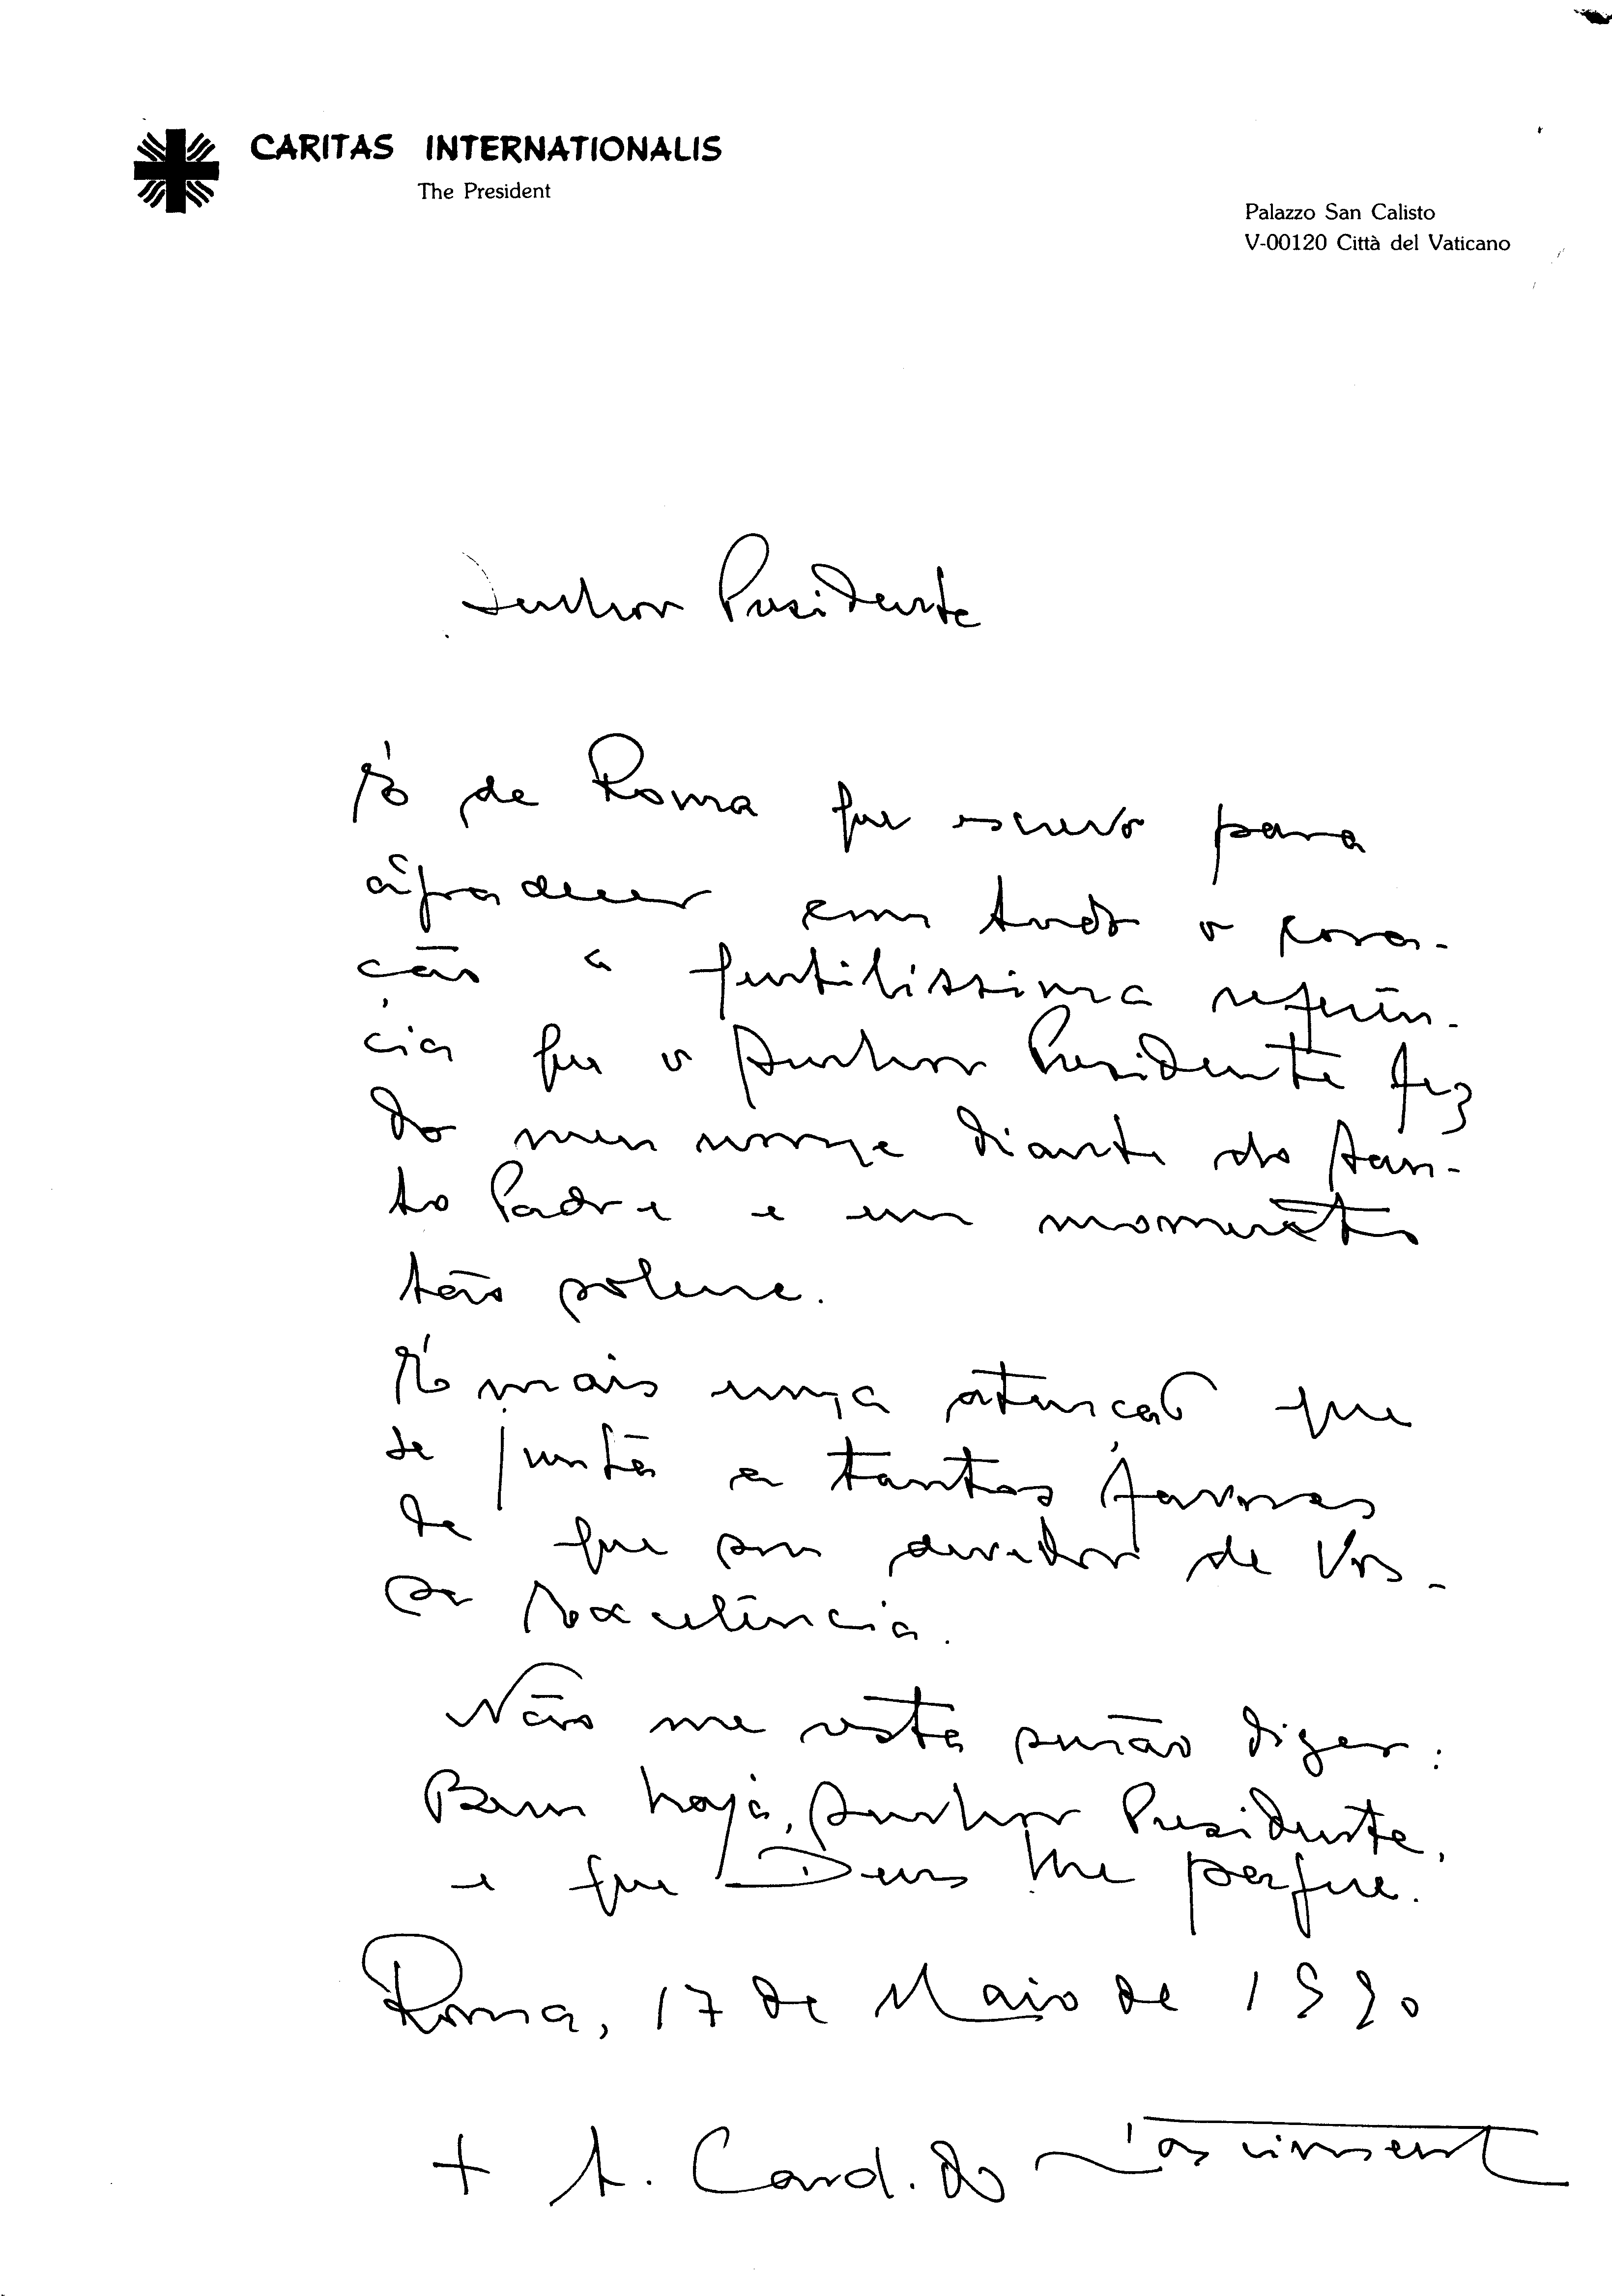 CARITAS INTERNATIONALIS
The President
Palazzo San Calisto
V-00120 Città del Vaticano
Senhor Presidente
É de Roma que escrevo para
agradecer em todo o cora-
ção a gentilíssima referên-
cia que o Senhor Presidente fez
do meu nome diante do San-
to Padre e em momento
tão solene.
É mais uma atenção que
se junta a tantos favores
de que sou devedor de Vos-
sa Excelência.
Não me resta senão dizer:
Bem haja, Senhor Presidente,
e que Deus lhe pague.
Roma, 17 de Maio de 1990
+ A. Card. do Nascimento